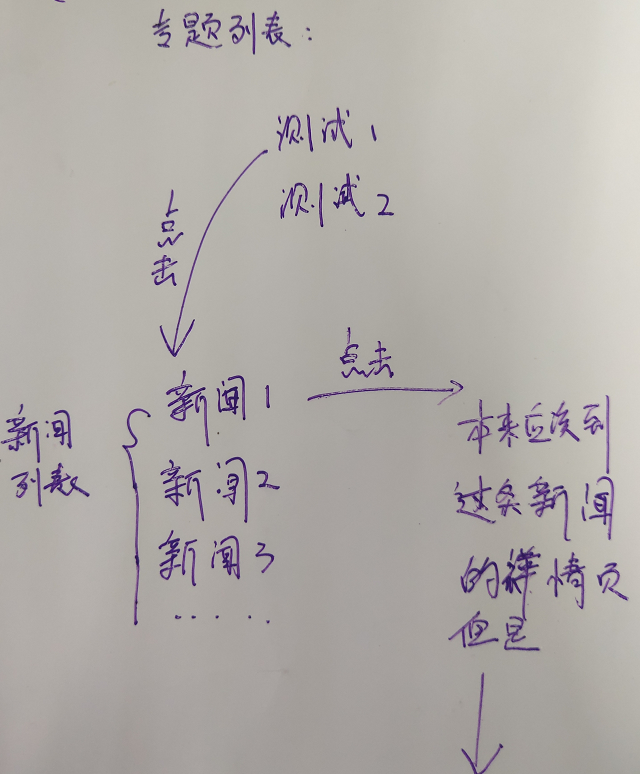 专题列表：
测试1
测试2
点击
点击
新闻1
新闻列表
新闻2
新闻3
......
本来应该到
这条新闻
的详情页
但是